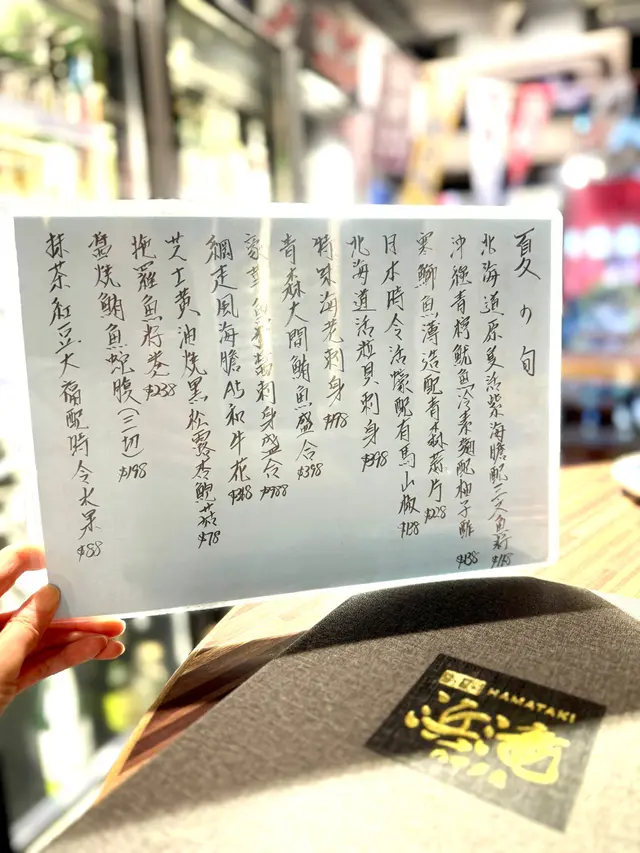 夏の旬
北海道原隻活紫海膽配三文魚籽
沖繩青檸魷魚冷素麵配柚子醋 $138
寒鰤魚薄造配青森蒜片 $228
日本時令活蠔配有馬山椒 $138
北海道活粒貝刺身 $398
特味海老刺身 $498
青森大間鮪魚盛合 $398
豪華 刺身盛合 $988
網走風海膽A5和牛花 $368
芝士黃油燒黑松露杏鮑菇 $78
拖羅魚籽卷 $238
鹽燒鮪魚蛇腹(三切) $198
抹茶紅豆大福配時令水果 $88
HAMATAKI
浜滝